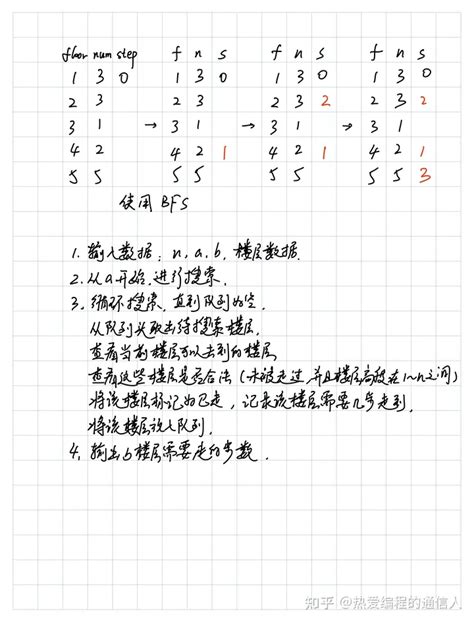 floor num step f n s f n s f n s
1 3 0 1 3 0 1 3 0 1 3 0
2 3 2 3 2 3 2 2 3 2
3 1 → 3 1 → 3 1 → 3 1
4 2 4 2 1 4 2 1 4 2 1
5 5 5 5 5 5 5 5 3
使用 BFS
1. 输入数据：n, a, b, 楼层数据.
2. 从a开始, 进行搜索.
3. 循环搜索, 直到队列为空.
从队列头取出待搜索楼层.
查看当前楼层可以去到的楼层
查看这些楼层是否合法（未被走过, 并且楼层高度在1~n之间）
将该楼层标记为已走, 记录该楼层需要几步走到,
将该楼层放入队列.
4. 输出b楼层需要走的步数.
知乎 @热爱编程的通信人